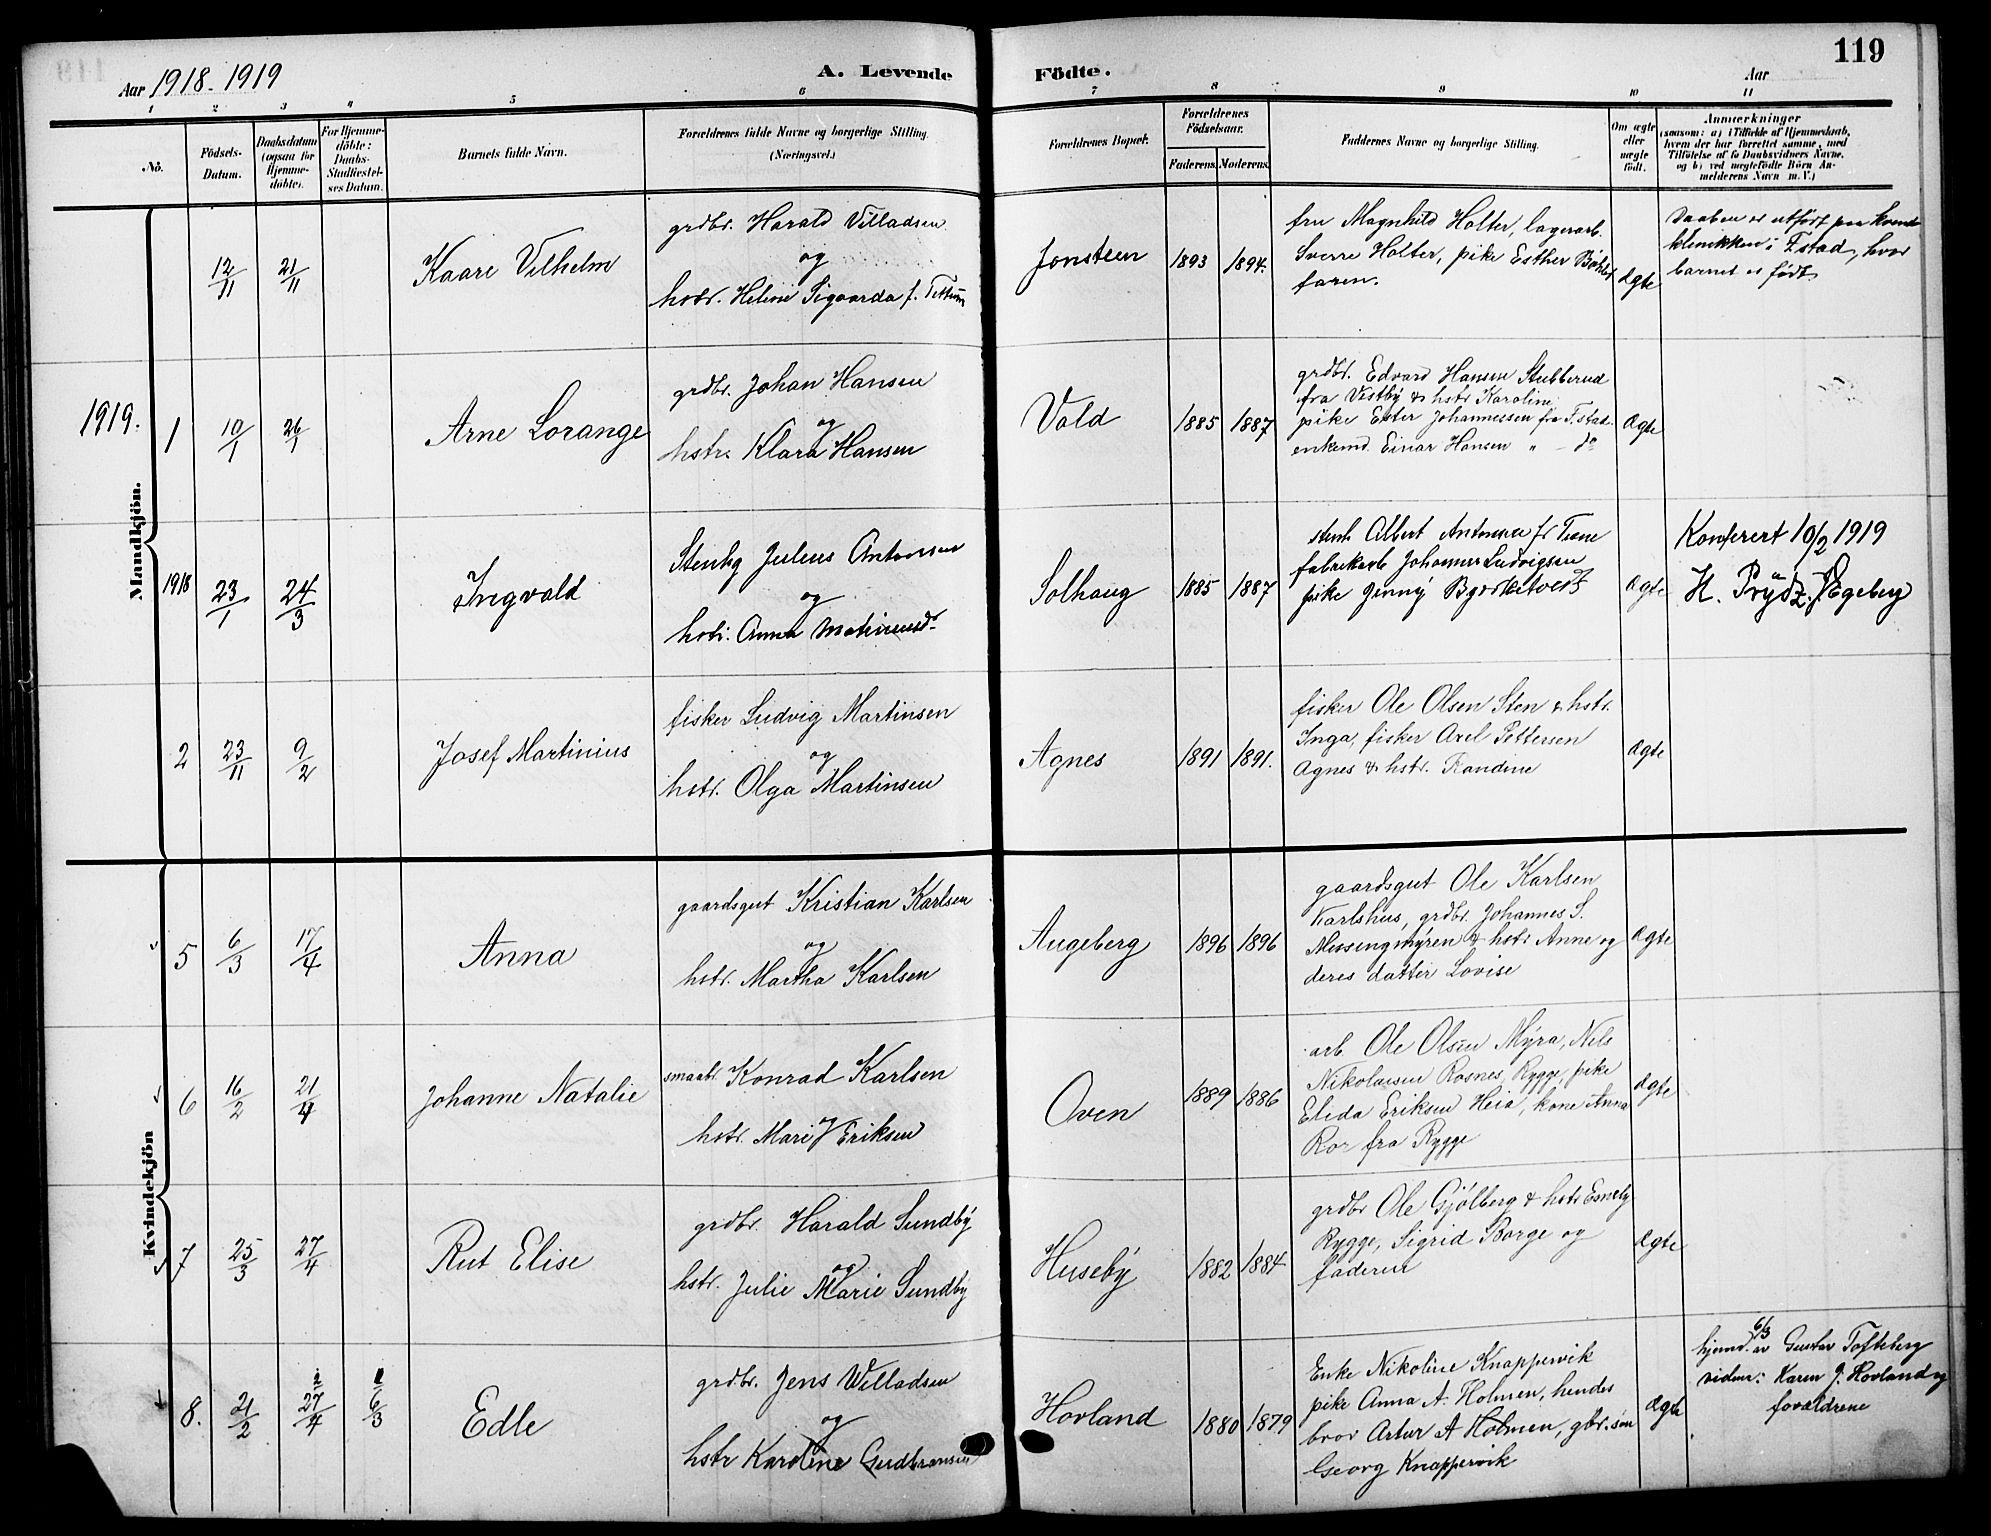 119
Aar 1918-1919
A. Levende Födte.
Aar
1 2 3 4 5 6 7 8 9 10 11
No.
Födsels-Datum.
Daabsdatum (ogsaa for Hjemme-döbte).
For Hjemme-döbte: Daabs-Stadfæstel-ses Datum.
Barnets fulde Navn.
Forældrenes fulde Navne og borgerlige Stilling. (Næringsvei.)
Forældrenes Bopæl.
Forældrenes Födselsaar.
Faderens. Moderens.
Faddernes Navne og borgerlige Stilling.
Om ægte eller uægte født.
Anmærkninger
(saasom: a) i Tilfælde af Hjemmedaab,
hvem der har forrettet samme, med
Tilföielse af to Daabsvidners Navne,
og b) ved uægtefødte Börn An-
melderens Navn m. V.)
Mandkjön.
12/11 21/11
Kaare Vilhelm
grdbr. Harald Villadsen
og
hstr. Helene Sigvarda f.
Jonsteen
1893 1894.
fru Magnhild Holter, lagerarb.
Sverre Holter, pike Esther
faren.
ægte
Daaben er utført paa kvinde
klinikken i F.stad, hvor
barnet er født
1919.
1 10/1 26/1
Arne Lorange
grdbr. Johan Hansen
og
hstr. Klara Hansen
Vold
1885 1887
grdbr. Edvard Hansen Stubberud
fra Vestby & hstr Karoline
pike Ester Johannessen fra F.stad
enkemd. Einar Hansen " — do
ægte
1918 23/1 24/3
Ingvald
Stenhg Julius Antonsen
og
hstr. Anna
Solhaug
1885 1887
stenh Albert Antonsen fr Tune
fabrikarb Johannes Ludvigsen
pike Jenny
ægte
Konferert 10/2 1919
H. Prydz. J. Egeberg
2 23/11 9/2
Josef Martinius
fisker Ludvig Martinsen
og
hstr. Olga Martinsen
Agnes
1891 1891.
fisker Ole Olsen Sten & hstr.
Inga, fisker Axel Pettersen
Agnes & hstr. Randine
ægte
Kvindekjön
5 6/3 17/4
Anna
gaardsgut Kristian Karlsen
og
hstr. Martha Karlsen
Augeberg
1896 1896
gaardsgut Ole Karlsen
Karlshus, grdbr. Johannes S.
Messingmyren & hstr Anne og
deres datter Lovise
ægte
6 16/2 21/4
Johanne Natalie
smaabr. Konrad Karlsen
hstr. Mari J Eriksen
Oven
1889 1886
arb. Ole Olsen Myra, Nils
Nikolaisen Rosnes, Rygge, pike
Elida Eriksen Heia, kone Anna
Ror fra Rygge
ægte
7 25/3 27/4
Rut Elise
grdbr. Harald Sundby
og
hstr. Julie Marie Sundby
Huseby
1882 1884
grdbr Ole Gjølberg & hstr
Rygge, Sigrid Borge og
faderen
ægte
8. 21/2 27/4 6/3
Edle
grdbr. Jens Willadsen
og
hstr Karoline Gudbransen
Hovland
1880 1879
Enke Nikoline Knappervik
pike Anna A. Holmen, hendes
bror Artur A Holmen, gbr. søn
Georg Knappervik
ægte
hjemd. 6/3 av Gustav Tofteberg
vidner: Karen J. Hovland og
forældrene